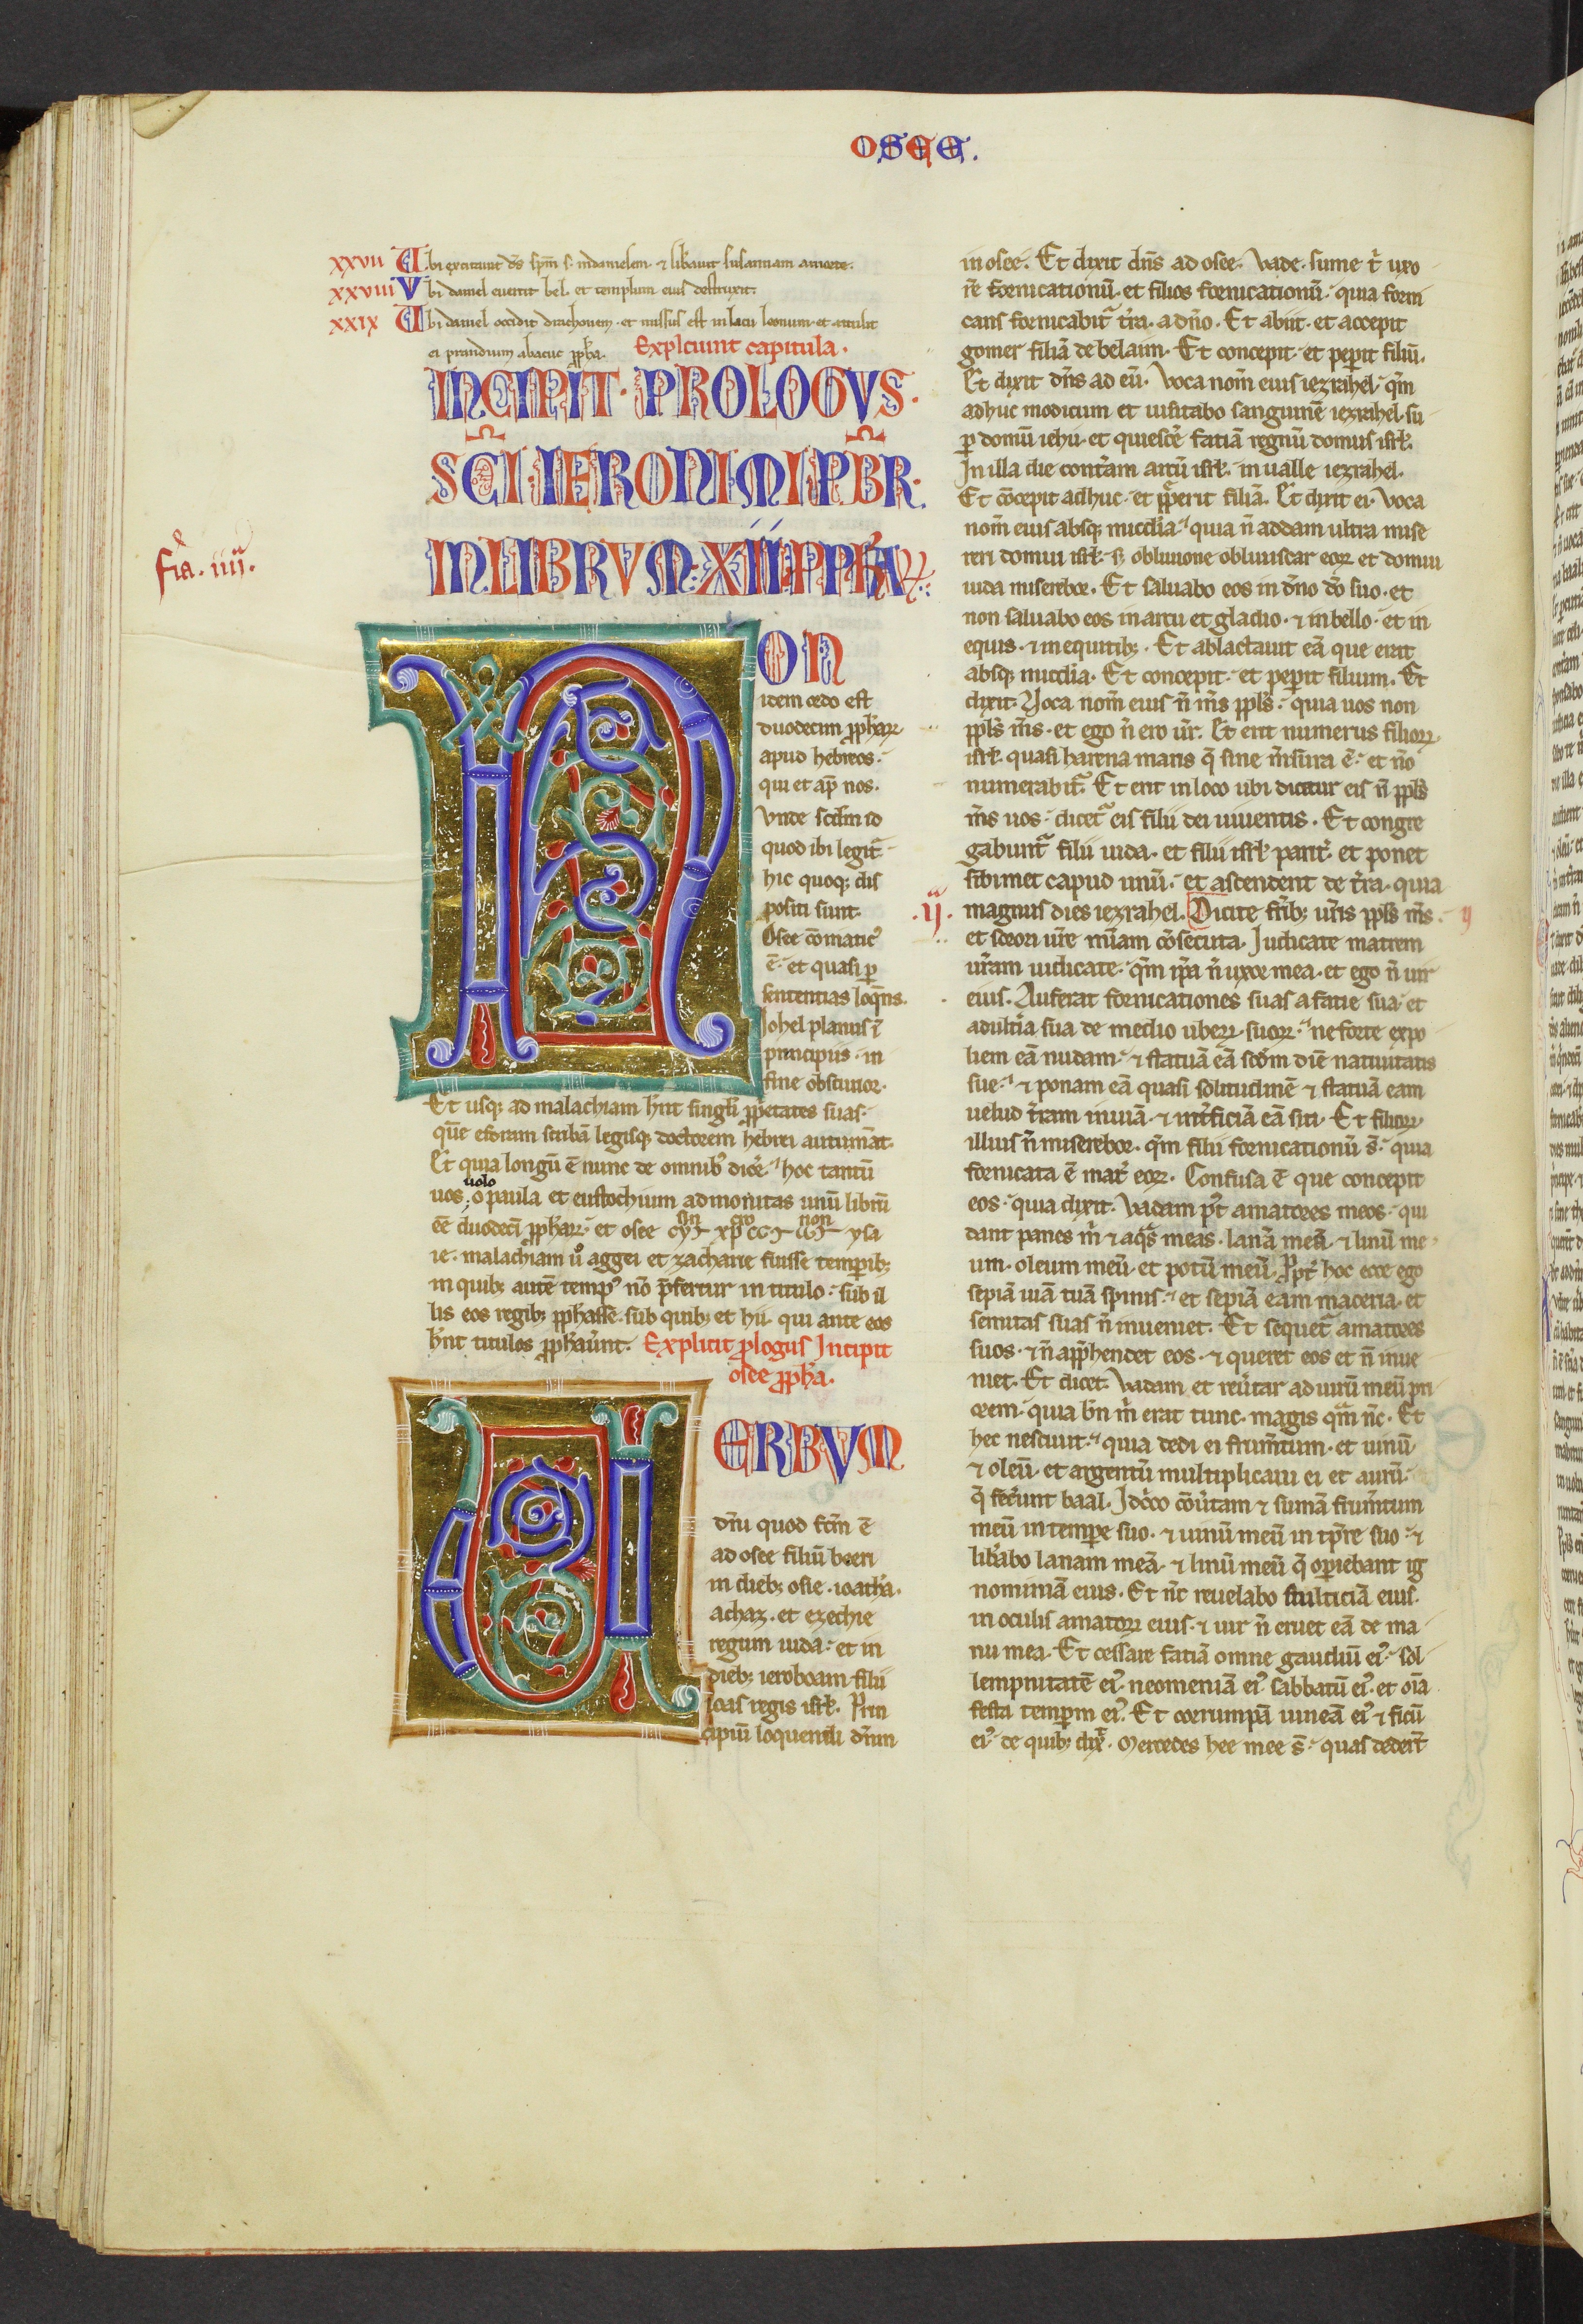 OSEE.
XXVII Ubi excitauit ds̄ sp̄m s̄. indanielem. ⁊ lib̄auit susannam amorte.
XXVIII Vbi daniel euertit bel. et templum eius destruxit.
XXIX Ubi daniel occidit drachonem. et missus est in lacu leonum. et attulit
ei prandium abacuc pph̄a. Explciunt capitula.
INCIPIT. PROLOGVS.
SC̄I. IERONIMI. PB̄R.
IN LIBRVM. XII. PPH̄AꝜ.
fr̄a. iiij.a
NON
idem ordo est
duodecim pph̄aꝝ
apud hebreos.
qui et ap̄ nos.
Vnde scd̄m id
quod ibi legit᷑
hic quoq; dis
positi sunt.
Osee cōmatic᷒
ē. et quasi ꝑ
sententias loq̄ns.
Iohel planus ī
principiis. in
fine obscurior.
Et usq; ad malachiam hn̄t singl̄i ꝓp̄etates suas.
quē esdram scribā legisq; doctorem hebrei autumāt.
Et quia longū ē nunc de omnib᷒ dicē. hoc tantū
uolo
uos, o paula et eustochium admonitas unū librū
eē duodeci᷑ pph̄aꝝ. et osee
ie. malachiam ů aggei et zacharie fuisse temꝑib;
in quib; autē temp᷒ nō p̄fertur in titulo. sub il
lis eos regib; pph̄asse. sub quib; et hii. qui ante eos
hn̄t titulos pph̄auer̄t. Explicit prologus Incipit
osee pph̄a.
VERBVM
dn̄i quod fc̄m ē
ad osee filiū beeri
in dieb; osie. ioathā.
achaz. et ezechie
regum iuda. et in
dieb; ieroboam filii
ioas regis isrl̄. Prin
cipiū loquendi dn̄m
in osee. Et dixit dn̄s ad osee. Vade. sume t̄ uxo
rē fornicationū. et filios fornicationū. quia forni
cans fornicabit᷑ t̄ra. a dn̄o. Et abiit. et accepit
gomer filiā debelaim. Et concepit. et peꝑit filiū.
Et dixit dn̄s ad eū. Voca nom̄ eius iezrahel. qm̄
adhuc modicum et uisitabo sanguinē iezrahel. su
ꝑ domū iehu. et quiescē faciā regnū domus isrl̄.
In illa die conteram arcū isrl̄. in ualle iezrahel.
Et cōcepit adhuc. et peperit filiā. Et dixit ei. Voca
nom̄ eius absq; mic̄dia. quia n̄ addam ultra mise
reri domui isrl̄. s; obliuione obliuiscar eoꝝ et domui
iuda miserebor. Et saluabo eos in dn̄o dō suo. et
non saluabo eos in arcu et gladio. ⁊ in bello. et in
equis. ⁊ in equitib;. Et ablactauit eā que erat
absq; mic̄dia. Et concepit. et peꝑit filium. Et
dixit. Voca nom̄ eius n̄ m̄s ppl̄s. quia uos non
ppl̄s m̄s. et ego n̄ ero ur̄. Et erit numerus filioꝝ
isrl̄. quasi harena maris q̄ sine m̄sura ē. et nō
numerabit᷑. Et erit in loco ubi dicitur eis n̄ ppl̄s
m̄s uos. dicet᷑ eis filii dei uiuentis. Et congre
gabunt᷑ filii iuda. et filii isrl̄ parit᷑. et ponet
sibimet capud unū. et ascendent de t̄ra. quia
.ij. magnus dies iezrahel. Dicite fr̄ib; ur̄is ppl̄s m̄s. ij
et sorori ur̄e mīam cōsecuta. Iudicate matrem
ur̄am iudicate. qm̄ ip̄a n̄ uxor mea. et ego n̄ uir
eius. Auferat fornicationes suas a facie sua. et
adult̄ia sua de medio uberꝝ suoꝝ. ne forte expo
liem eā nudam. ⁊ statuā eā scd̄m diē natiuitatis
sue. ⁊ ponam eā quasi solitudinē ⁊ statuā eam
uelud t̄ram inuiā. ⁊ int̄ficiā eā siti. Et filioꝝ
illius n̄ miserebor. qm̄ filii fornicationū s̄. quia
fornicata ē mat᷑ eoꝝ. Confusa ē que concepit
eos. quia dixit. Vadam p᷑t amatores meos. qui
dant panes m̄ ⁊ aq̄s meas. lanā meā. ⁊ linū me
um. oleum meū. et potū meū. Ppt᷑ hoc ecce ego
sepiā uiā tuā spinis. et sepiā eam maceria. et
semitas suas n̄ inueniet. Et sequet᷑ amatores
suos. ⁊ n̄ app̄hendet eos. ⁊ queret eos et n̄ inue
niet. Et dicet. Vadam et reůtar ad uirū meū pri
orem. quia bn̄ m̄ erat tunc. magis qm̄ nc̄. Et
hec nesciuit. quia dedi ei frum̄tum. et uinū.
⁊ oleū. et argentū multiplicaui ei et aurū.
q̄ fecerunt baal. Idcirco cōůtam ⁊ sumā frum̄tum
meū in tempore suo. ⁊ uinū meū in tp̄re suo. ⁊
lib̄abo lanam meā. ⁊ linū meū q̄ opiebant ig
nominiā eius. Et nc̄ reuelabo stulticiā eius.
in oculis amatoꝝ eius. ⁊ uir n̄ eruet eā de ma
nu mea. Et cessare faciā omne gaudiū ei᷒. sol
lempnitatē ei᷒. neomeniā ei᷒. sabbatū ei᷒. et oīa
festa temporum ei᷒. Et corrumpā uineā ei᷒ ⁊ ficū
ei᷒. de quib; dix̄. Mercedes hee mee s̄. quas dederūt